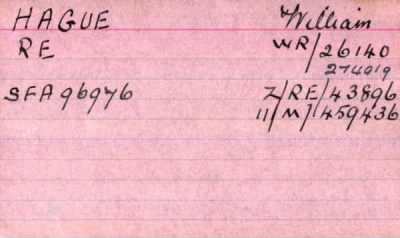 HAGUE William
RE WR/26140
274019
SFA96976 7/RE/43896
11/M]/459436